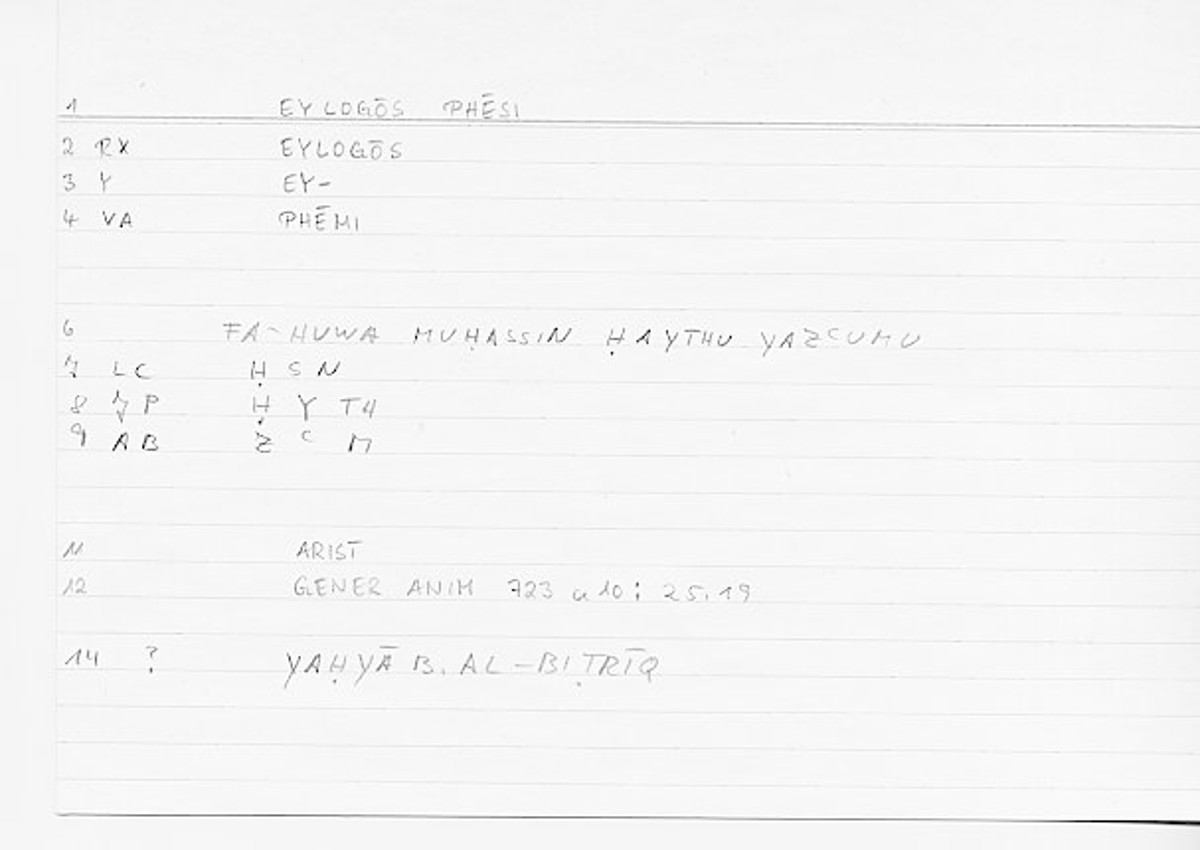 1 EYLOGŌS PHĒSI
2 RX EYLOGŌS
3 Y EY-
4 VA PHĒMI
6 FA-HUWA MUḤASSIN ḤAYTHU YAZCUMU
7 LC Ḥ S N
8 7P Ḥ Y TH
9 AB Ż C M
11 ARIST
12 GENER ANIM 723 a 10; 25.19
14 ? YAḤYĀ B. AL-BIṬRĪQ